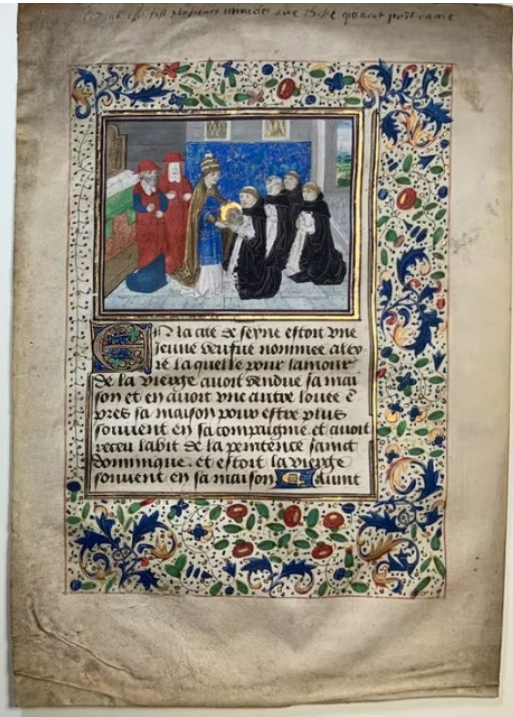 plusieurs miracles
En la cite de seyne estoit vne
Jeune veufue nommee aley
re la quelle pour lamour
de la vierge auoit vendue sa mai
son et en auoit vne autre louee
pres sa maison pour estre plus
souuent en sa compaignie et auoit
receu labit de la penitence sainct
dominique. et estoit la vierge
souuent en sa maison Aduint